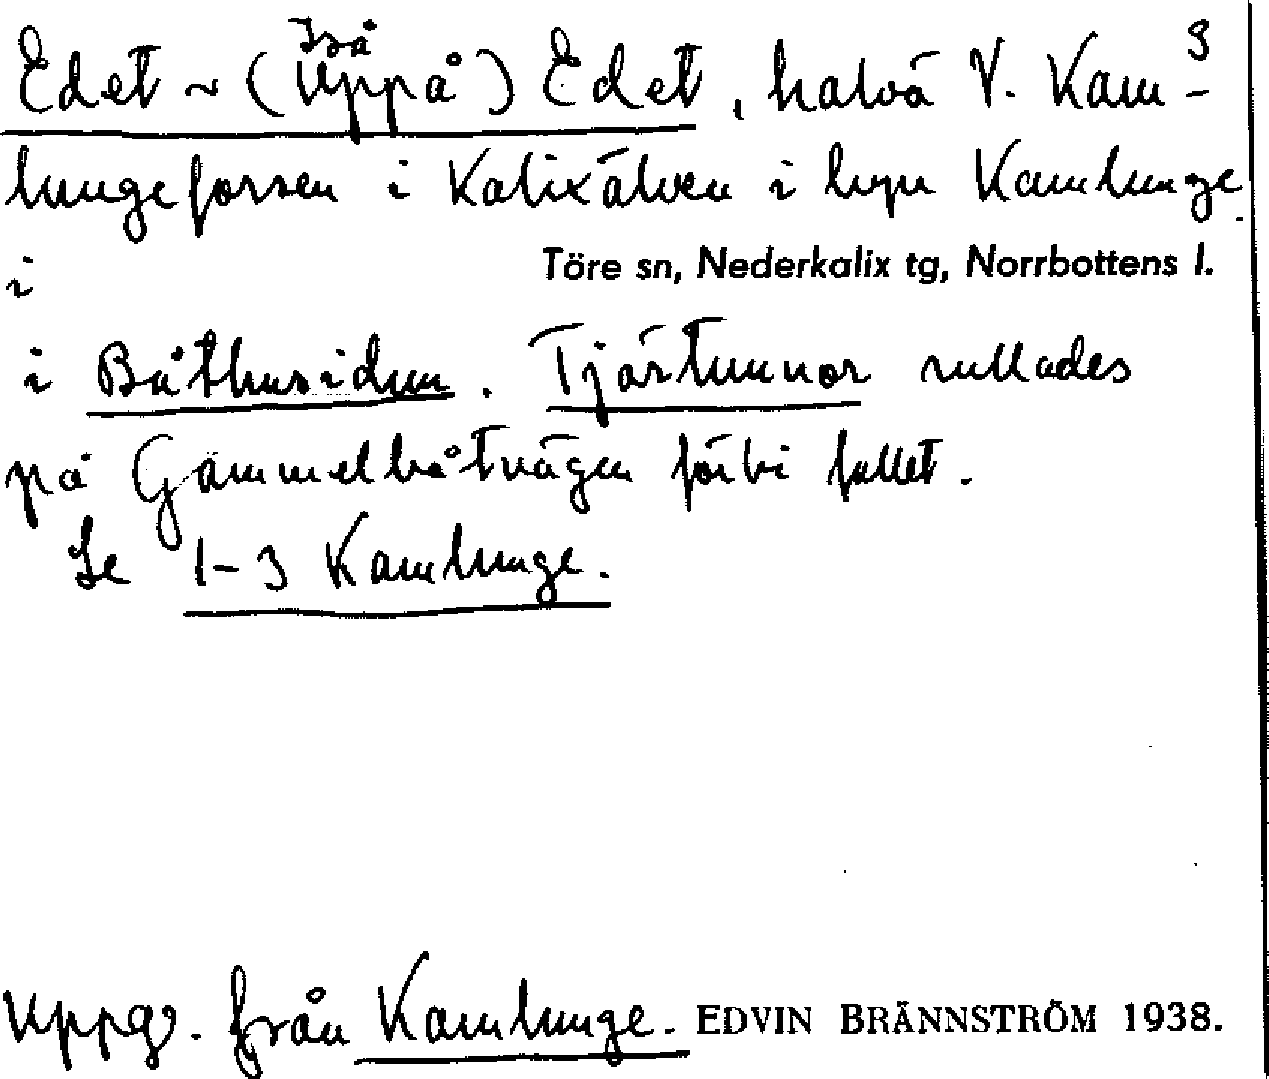 3
Iså
Edet ~ (Uppå) Edet, halvö V. Kam-
lungeforsen i Kalixälven i byn Kamlunge.
i Töre sn, Nederkalix tg, Norrbottens l.
i Båthusidun. Tjärtunnor rullades
på Gammelbåtvägen förbi fallet.
Se 1-3 Kamlunge.
Uppg. från Kamlunge. EDVIN BRÄNNSTRÖM 1938.